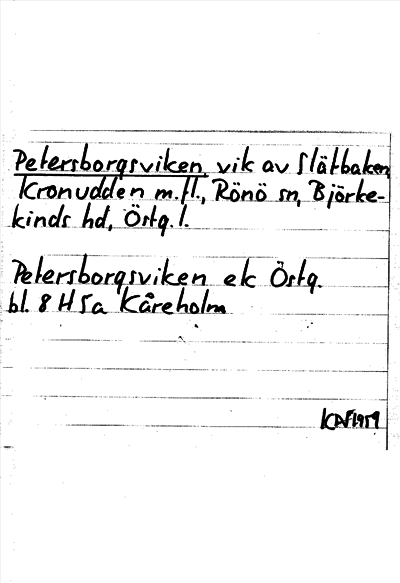 Petersborgsviken, vik av Slätbaken
Kronudden m.fl., Rönö sn, Björke-
kinds hd, Östg. l.
Petersborgsviken ek Östg.
bl. 8 H 5a Kåreholm